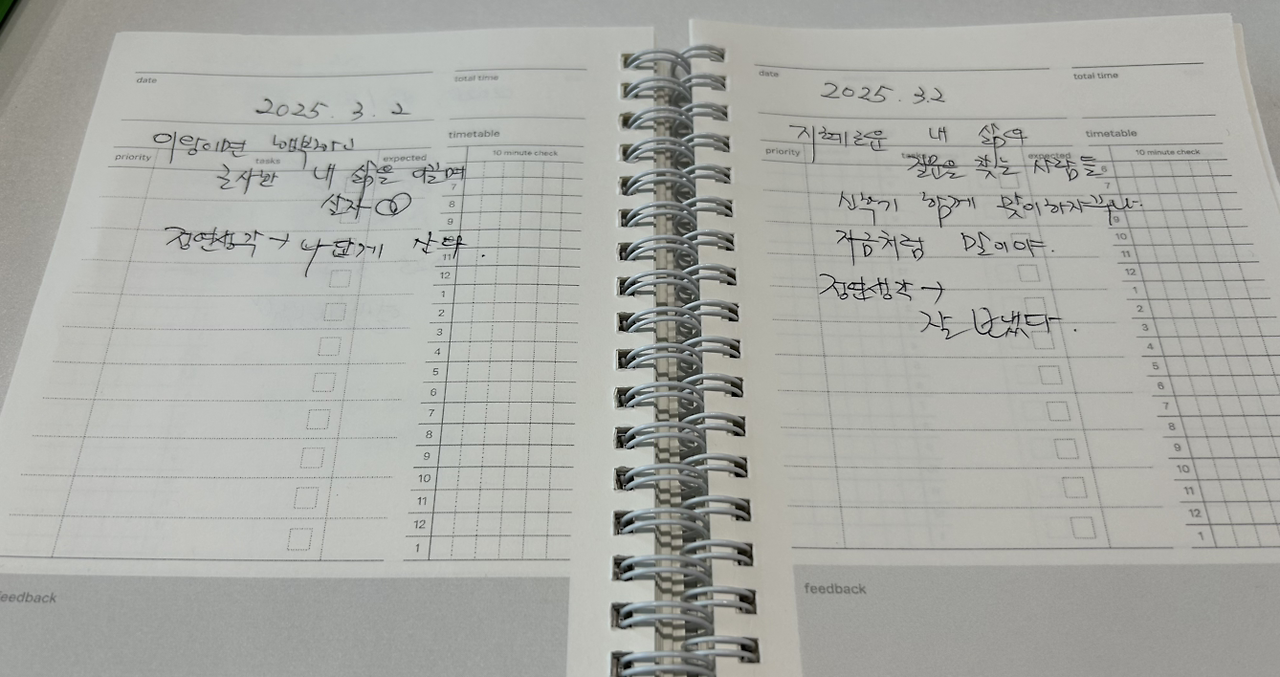 date
total time
2025. 3. 2
이왕이면
timetable
priority
tasks
expected
10 minute check
내 삶을
살자
7
8
9
정연생각→ 나답게 산다.
11
12
1
2
3
4
5
6
7
8
9
10
11
12
1
feedback
date
total time
2025. 3.2
지혜로운 내 삶의
timetable
priority
expected
10 minute check
질문을 찾는 사람들
7
신학기 함께 맞이하자꾸나.
9
지금처럼 말이야.
10
11
12
정연생각→
1
2
잘 보냈다.
3
4
5
6
7
8
9
10
11
12
1
feedback